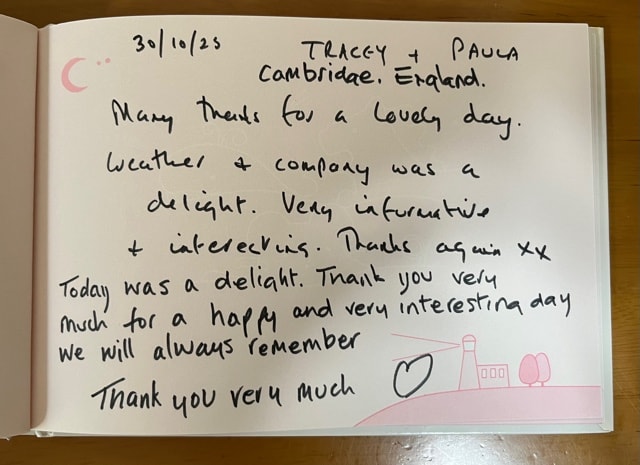 30/10/25 TRACEY + PAULA
Cambridge. England.
Many thanks for a lovely day.
Weather + company was a
delight. Very informative
+ interesting. Thanks again xx
Today was a delight. Thank you very
much for a happy and very interesting day
we will always remember
Thank you very much ♡